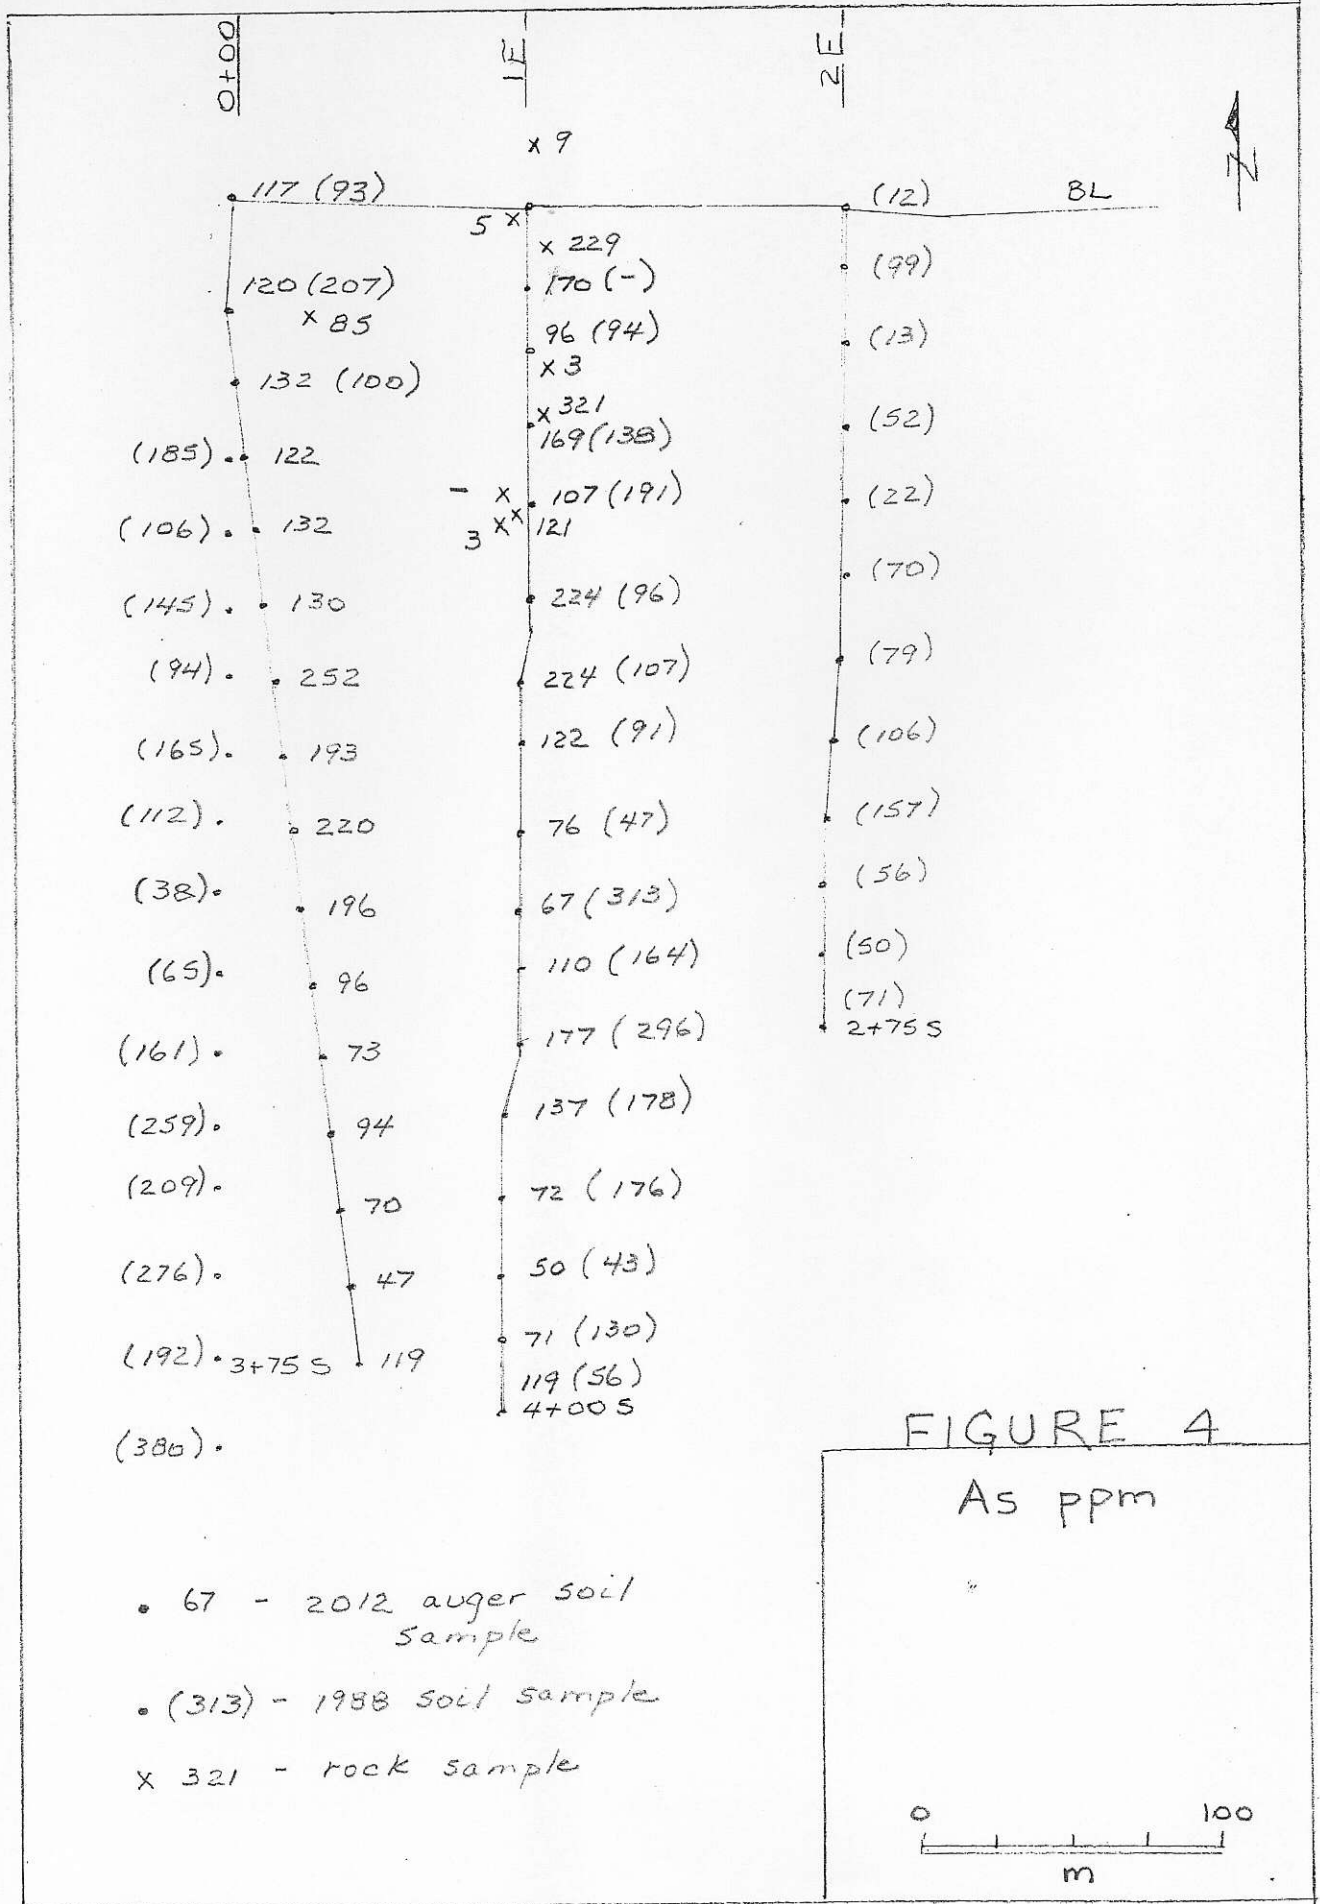 0+00
1E
2E
N
x 9
117 (93)
(12)
BL
5 x
x 229
(99)
120 (207)
170 (-)
x 85
96 (94)
(13)
x 3
132 (100)
x 321
(52)
169 (138)
(185) 122
- x 107 (191)
(22)
(106) 132
3 x x 121
(70)
(145) 130
224 (96)
(94) 252
224 (107)
(79)
(165) 193
122 (91)
(106)
(112) 220
76 (47)
(157)
(38) 196
67 (313)
(56)
(65) 96
110 (164)
(50)
(71)
2+75 S
(161) 73
177 (296)
(259) 94
137 (178)
(209) 70
72 (176)
(276) 47
50 (43)
(192) 3+75 S 119
71 (130)
119 (56)
4+00 S
(380)
FIGURE 4
As ppm
• 67 - 2012 auger soil
sample
• (313) - 1988 soil sample
x 321 - rock sample
0 100
m